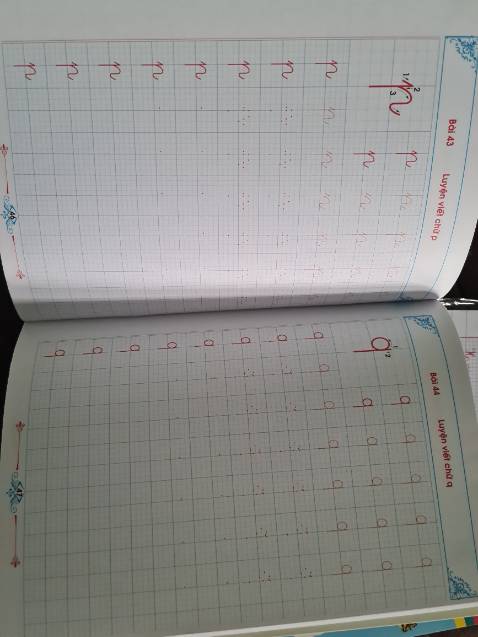 Bài 43 Luyện viết chữ p
1 2 3
p p p p p p
p p p p p
p p p p p p p
p
p
p
p
p
p
p
46
Bài 44 Luyện viết chữ q
1 2
q q q q q q
q q q q q
q q q q q q q
q
q
q
q
q
q
q
47